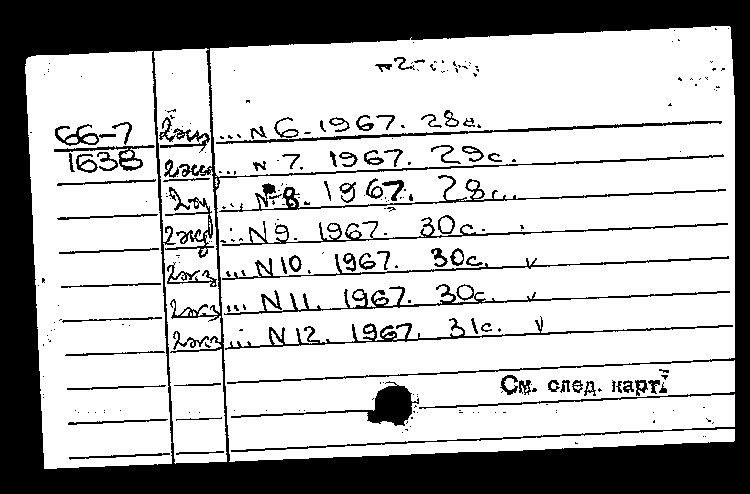 66-7 2экз ... N 6. 1967. 28с.
1638 2экз ... N 7. 1967. 29с.
2экз ... N 8. 1967. 28с.
2экз ... N 9. 1967. 30с.
2экз ... N 10. 1967. 30с. v
2экз ... N 11. 1967. 30с. v
2экз ... N 12. 1967. 31с. v
См. след. карт.